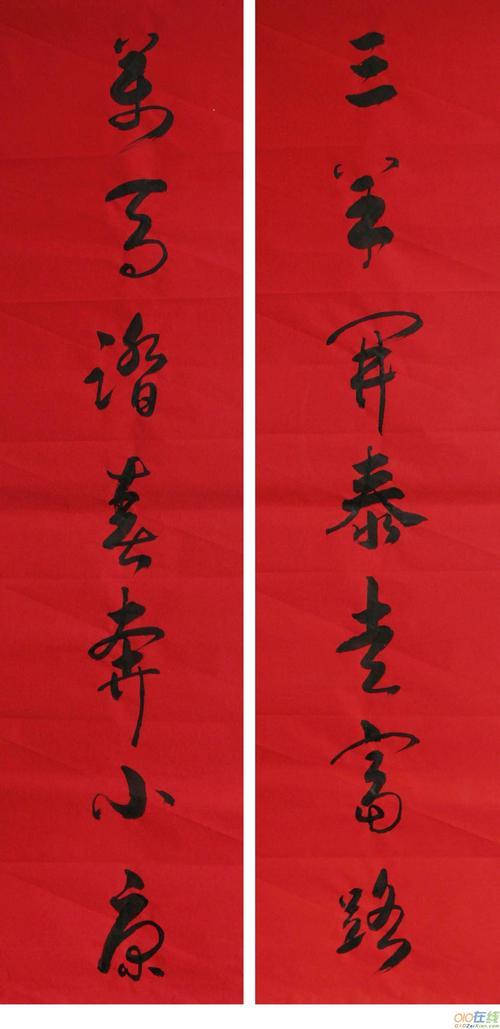 三羊開泰走富路
萬馬諧喜奔小康
010在线
010ZaiXian.com